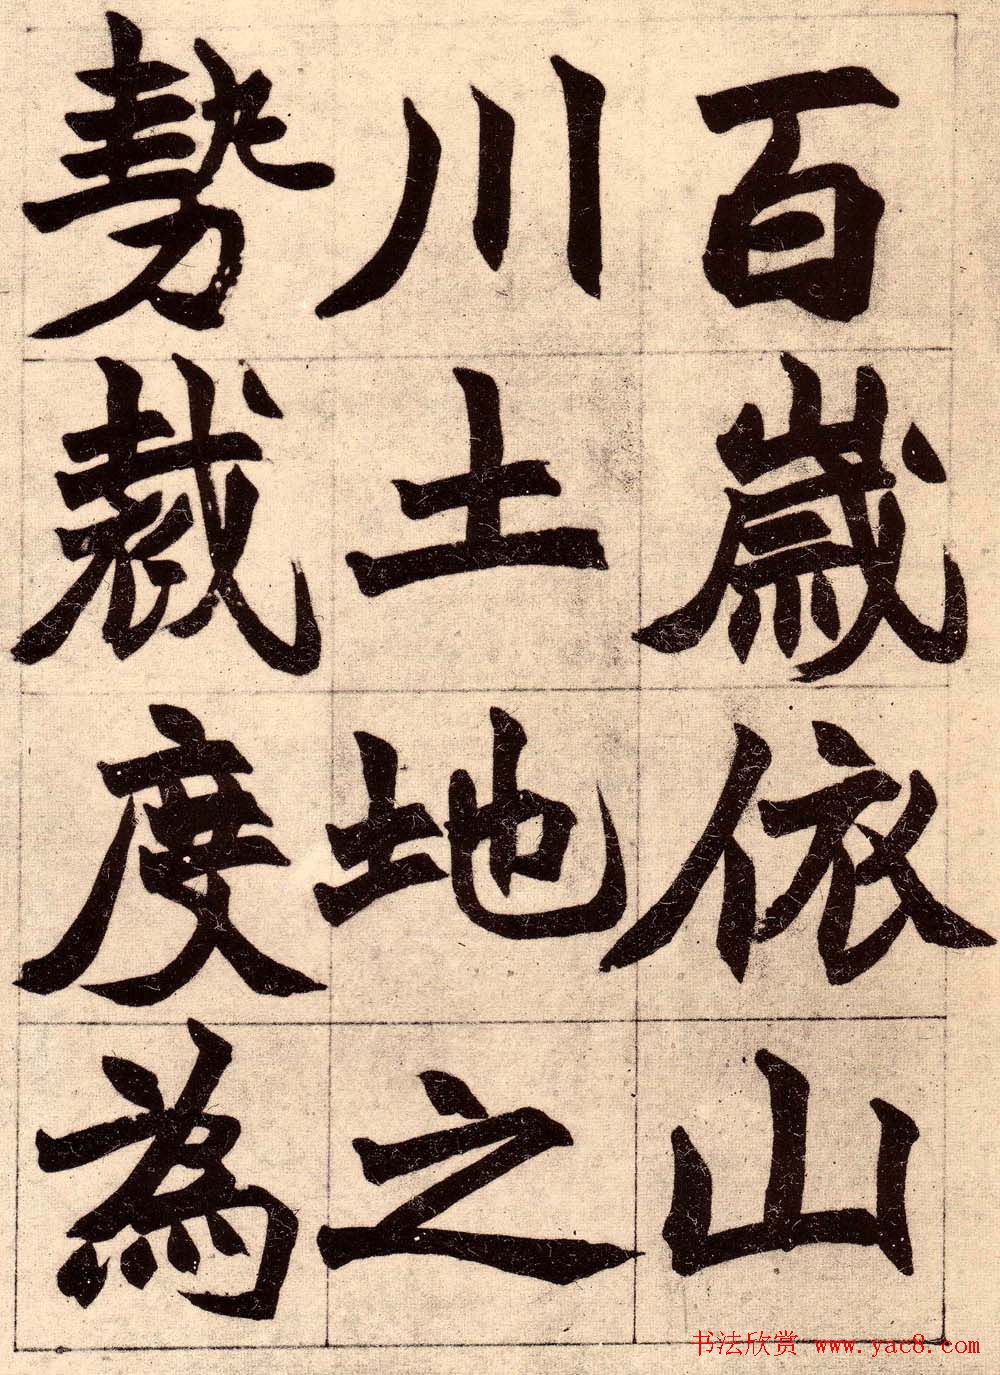 百歲依山
川土地之
勢裁度為
书法欣赏 www.yac8.com